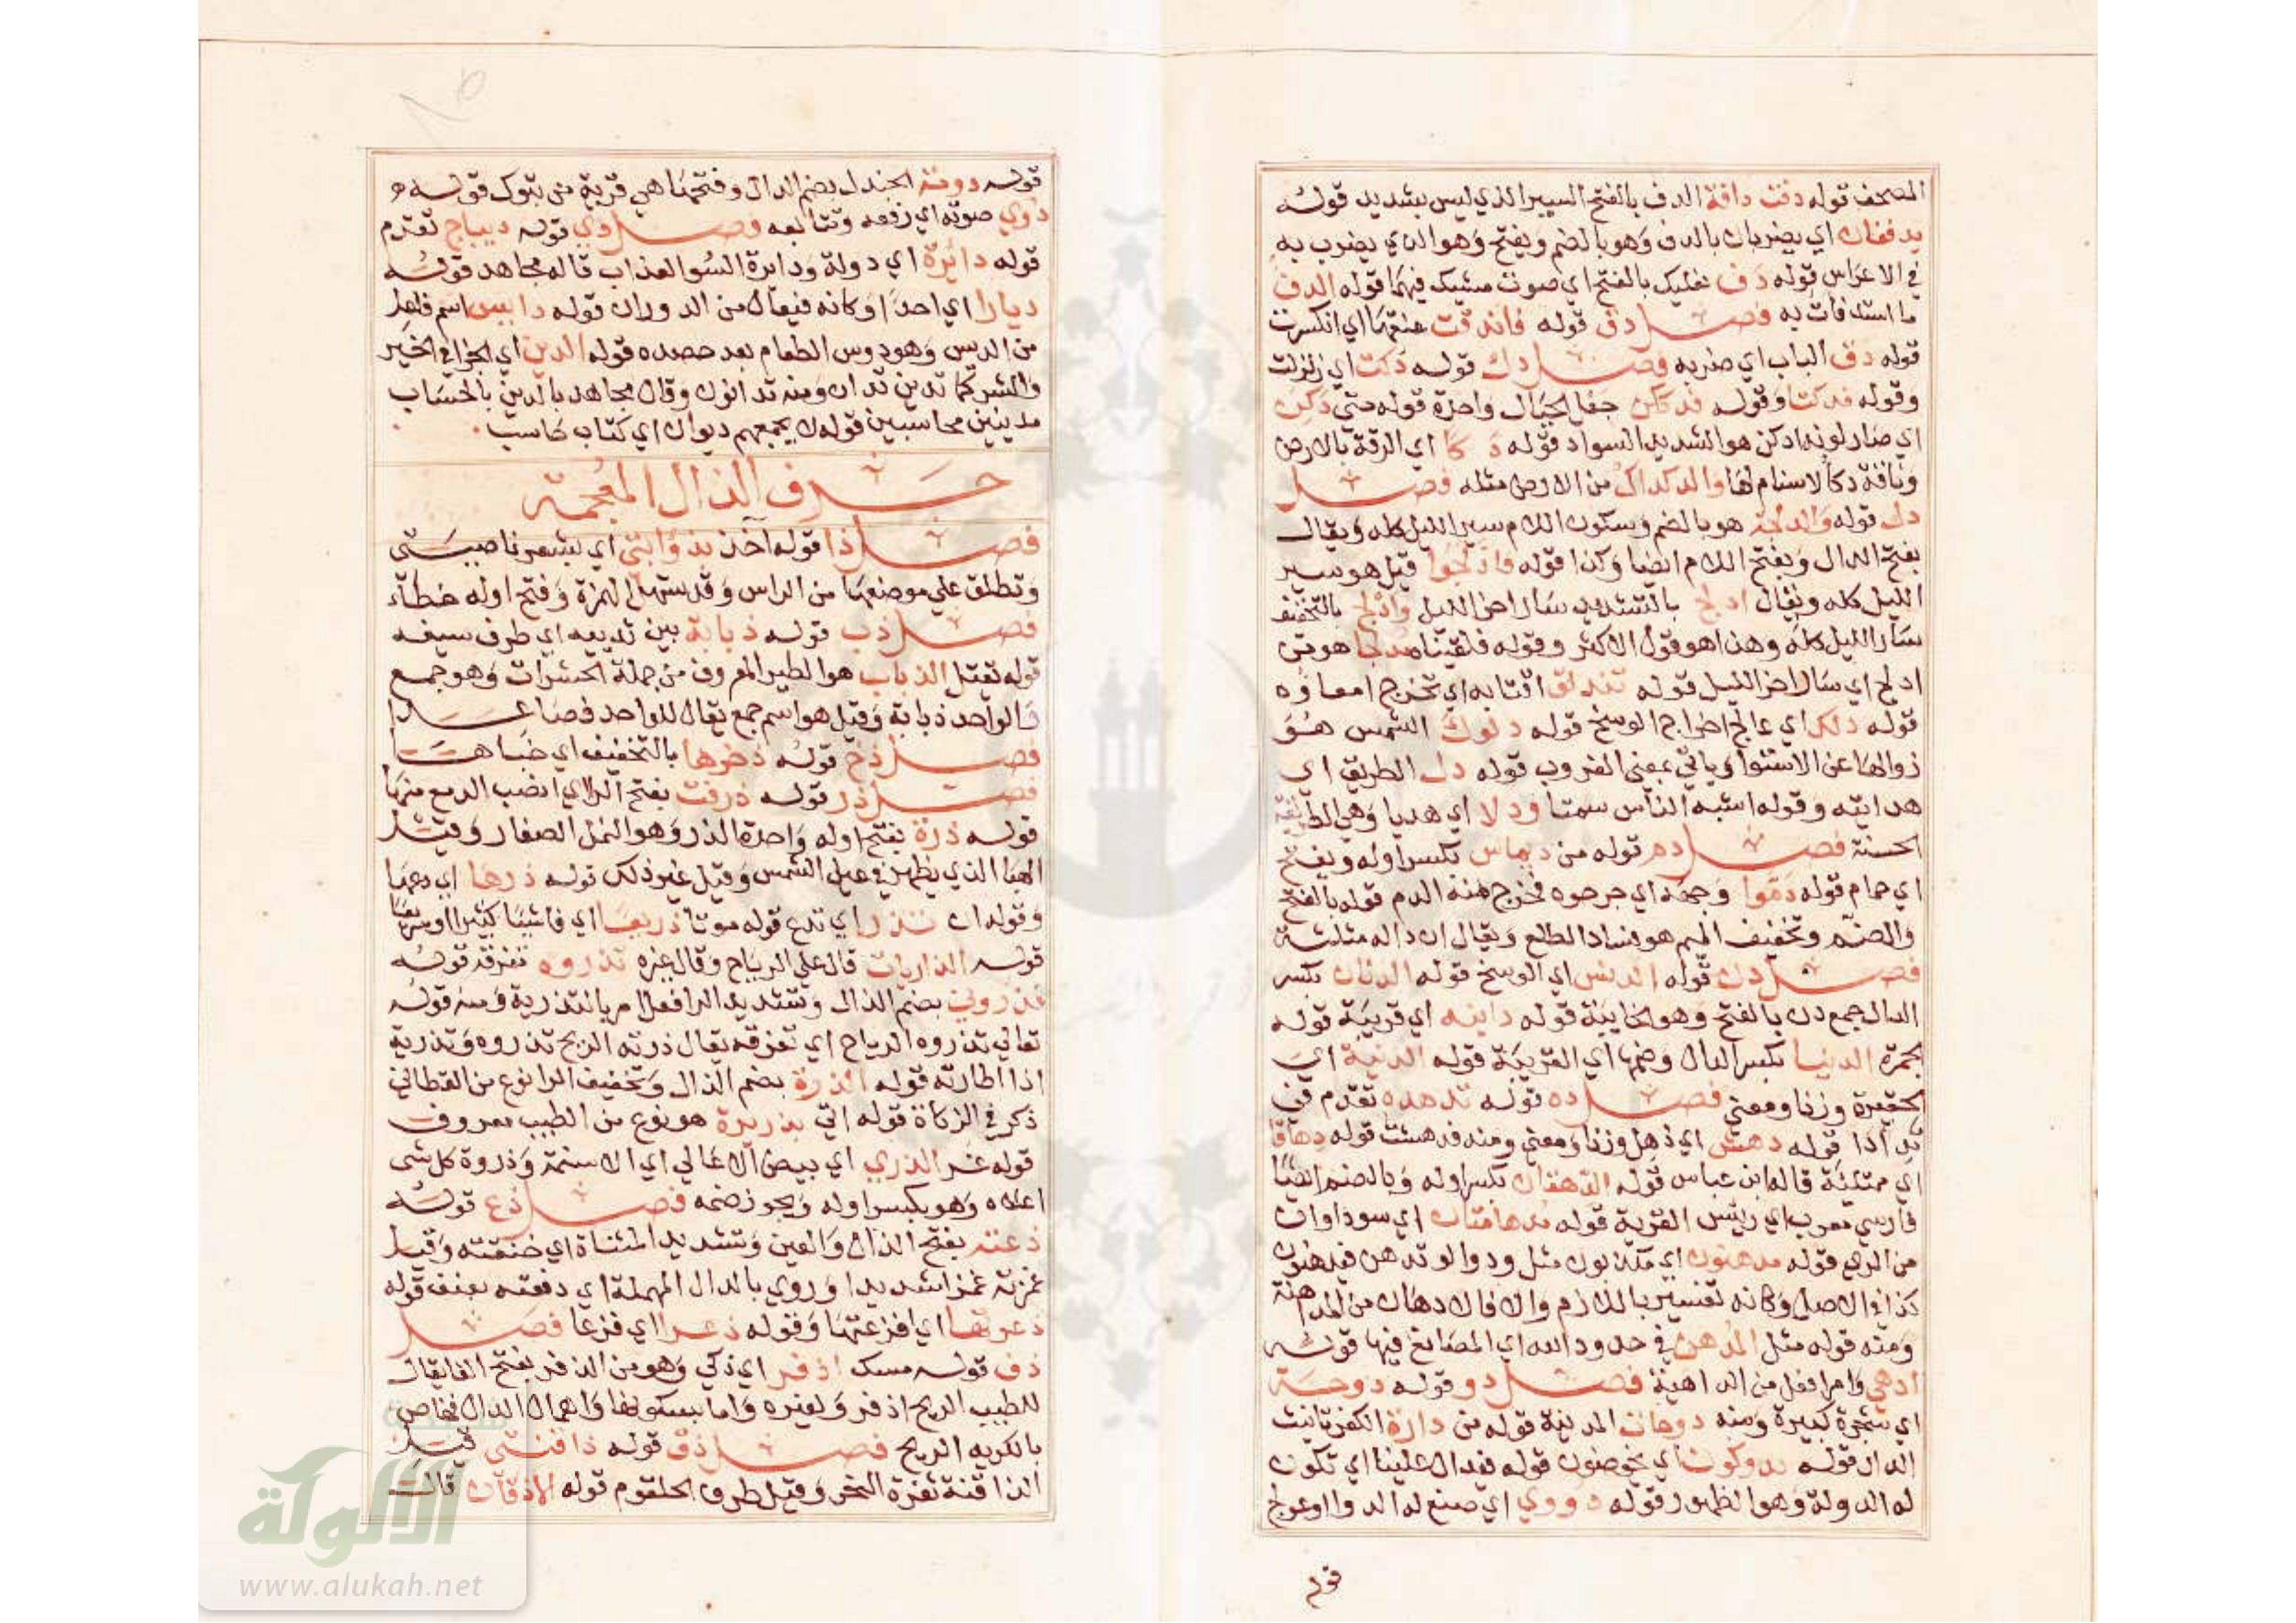 المصحف قوله دفت دافة الدف بالفتح السير الذي ليس بشديد قوله
يدففان اي يضربان بالدف وهو بالضم ويفتح وهو الذي يضرب به
في الاعراس قوله دف نعليك بالفتح اي صوت مشيك فيهما قوله الدف
ما استدفات به فصل دق قوله فاندقت عنقها اي انكسرت
قوله دق الباب اي ضربه فصل دك قوله دكت اي زلزلت
وقوله فدكتا وقوله فدككن جعل الجبال واحدة قوله حتي دكن
اي صار لونه ادكن هو الشديد السواد قوله دكا اي الزقه بالارض
وناقة دكا لاسنام لها والدكداك من الارض مثله فصل
دل قوله والدلجة هو بالضم وسكون اللام سير الليل كله ويقال
بفتح الدال وبفتح اللام ايضا وكذا قوله فادلجوا قيل هو سير
الليل كله ويقال ادلج بالتشديد سار اخر الليل وادلج بالتخفيف
سار الليل كله وهذا هو قول الاكثر وقوله فلقيناه مدلجا هو من
ادلج اي سار اخر الليل قوله تندلق اقتابه اي تخرج امعاوه
قوله دلك اي عالج اخراج الوسخ قوله دلوك الشمس هو
زوالها عن الاستوا وياتي بمعني الغروب قوله دل الطريق اي
هدايته وقوله اشبه الناس سمتا ودلا اي هديا وهي الطريقة
الحسنة فصل دم قوله من ديماس بكسر اوله ويفتح
اي حمام قوله دموا وجهه اي جرحوه فخرج منه الدم قوله بالفتح
والضم وتخفيف الميم هو فساد الطلع ويقال ان داله مثلثة
فصل دن قوله الدنس اي الوسخ قوله الدنان بكسر
الدال جمع دن بالفتح وهو الخابية قوله دانية اي قريبة قوله
بجمرة الدنيا بكسر الدال وضمها اي القريبة قوله الدنية اي
الحقيرة وزنا ومعني فصل ده قوله تدهده تقدم في
تدأدأ قوله دهش اي ذهل وزنا ومعني ومنه فدهشت قوله دهاقا
اي ممتلئة قاله ابن عباس قوله الدهقان بكسر اوله وبالضم ايضا
فارسي معرب اي رئيس القرية قوله مدهامتان اي سوداوان
من الري قوله مدهنون اي مكذبون مثل ودوا لو تدهن فيدهنون
كذا في الاصل وكانه تفسير باللازم والا فالادهان من المداهنة
ومنه قوله مثل المدهن في حدود الله اي المصانع فيها قوله
ادهي وامر افعل من الداهية فصل دو قوله دوحة
اي شجرة كبيرة ومنه دوحات المدينة قوله من دارة الكفر تانيث
الدار قوله يدوكون اي يخوضون قوله فيدال علينا اي تكون
له الدولة وهو الظهور قوله دووي اي صنع له الدوا او عولج
قوله
قوله دومة الجندل بضم الدال وفتحها هي قرية من تبوك قوله
دوي صوته اي رفعه وتتابعه فصل دي قوله ديباج تقدم
قوله دائرة اي دولة ودايرة السو العذاب قاله مجاهد قوله
ديارا اي احدا وكانه فيعال من الدوران قوله دايس اسم فاعل
من الديس وهو دوس الطعام بعد حصده قوله الدين اي الجزا في الخير
والشر كما تدين تدان ومنه تدانون وقال مجاهد بالدين بالحساب
مدينين محاسبين قوله لا يجمعهم ديوان اي كتاب حاسب
حرف الذال المعجمة
فصل ذا قوله آخذ بذؤابتي اي بشعر ناصيتي
وتطلق علي موضعها من الراس وقد تسهل الهمزة وفتح اوله خطاء
فصل ذب قوله ذبابة بين ثدييه اي طرف سيفه
قوله تقتل الذباب هو الطير المعروف من جملة الحشرات وهو جمع
والواحد ذبابة وقيل هو اسم جمع يقال للواحد فصاعدا
فصل ذخ قوله ذخرها بالتخفيف اي خباها
فصل ذر قوله ذرفت بفتح الراي انصب الدمع منها
قوله ذرة بفتح اوله واحدة الذر وهو النمل الصغار وقيل
الهبا الذي يظهر في عين الشمس وقيل غير ذلك قوله ذرها اي دعها
وقوله ان تذر اي تدع قوله موتا ذريعا اي فاشيا كثيرا او سريعا
قوله الذاريات قال علي الرياح وقال غيره تذروه تفرقه قوله
فذروني بضم الذال وتشديد الرا فعل امر بالتذرية ومنه قوله
تعالي تذروه الرياح اي تفرقه يقال ذرته الريح تذروه وتذريه
اذا اطارته قوله الذرة بضم الذال وتخفيف الرا نوع من القطاني
ذكر في الزكاة قوله اتي بذريرة هو نوع من الطيب معروف
قوله غر الذري اي بيض الاعالي اي الاسنمة وذروة كل شي
اعلاه وهو بكسر اوله ويجوز ضمه فصل ذع قوله
ذعته بفتح الذال والعين وتشديد المثناة اي خنقته وقيل
غمزته غمزا شديدا وروي بالدال المهملة اي دفعته بعنف قوله
ذعرتها اي افزعتها وقوله ذعرا اي فزعا فصل
ذف قوله مسك اذفر اي ذكي وهو من الذفر بفتح الفا يقال
للطيب الريح اذفر ولغيره واما بسكونها واهمال الدال فخاص
بالكريه الريح فصل ذق قوله ذاقنتي قيل
الذاقنة ثغرة النحر وقيل طرف الحلقوم قوله للاذقان قال
الألوكة
www.alukah.net